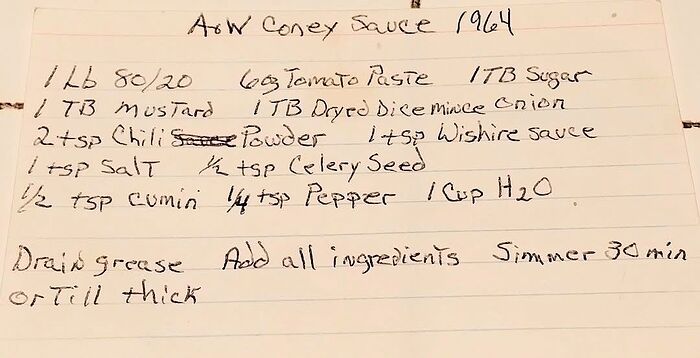 A&W Coney Sauce 1964
1 Lb 80/20 6oz Tomato Paste 1TB Sugar
1 TB mustard 1TB Dryed Dice mince onion
2 tsp Chili Sauce Powder 1 tsp Wishire sauce
1 tsp Salt ½ tsp Celery Seed
1/2 tsp cumin 1/4 tsp Pepper 1 Cup H2O
Drain grease Add all ingredients Simmer 30 min
or Till thick